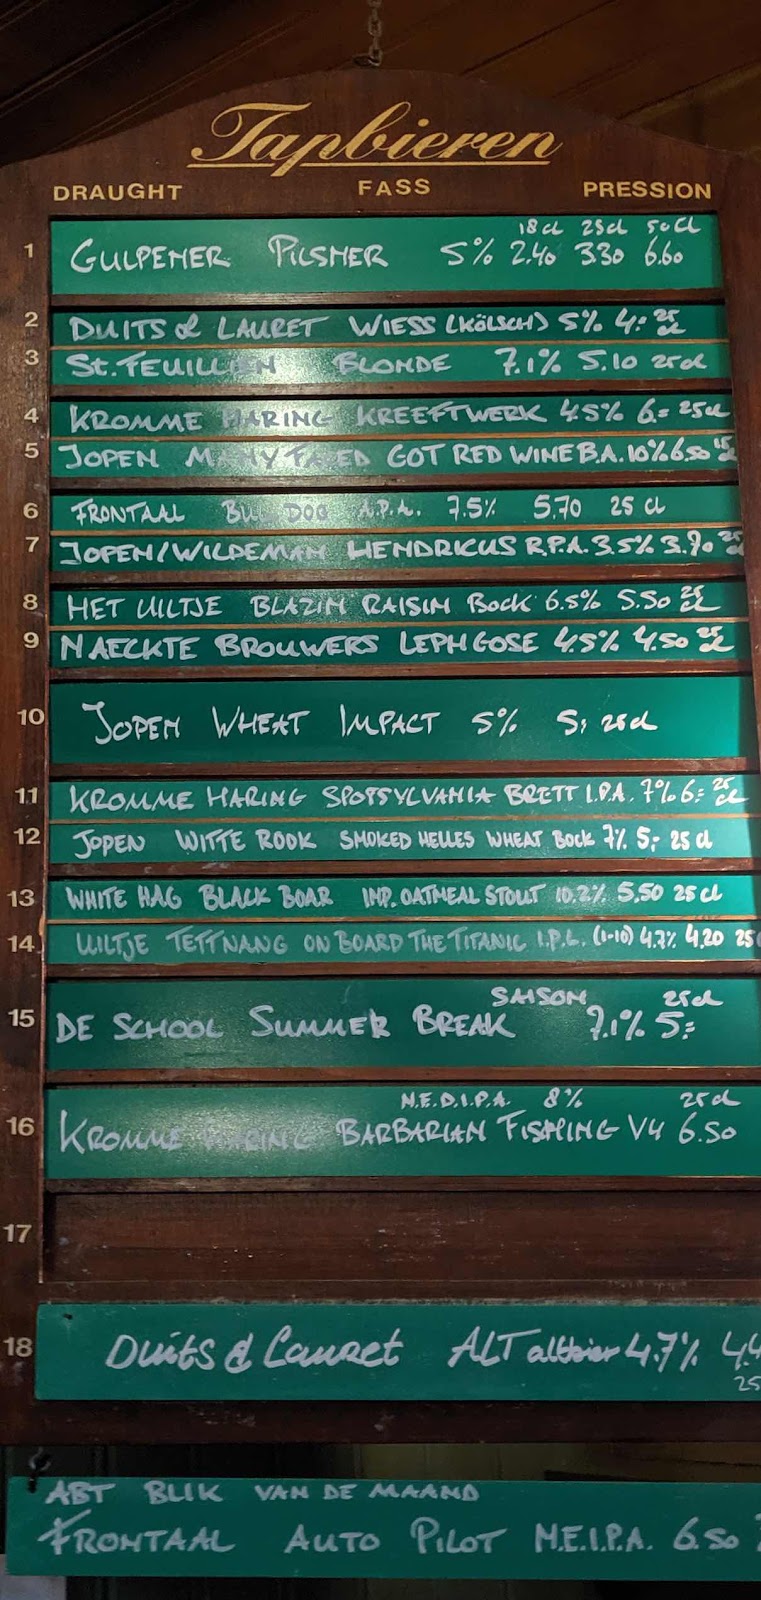 Tapbieren
DRAUGHT FASS PRESSION
18cl 25cl 50cl
1 GULPENER PILSNER 5% 2.40 3.30 6.60
2 DUITS & LAURET WIESS (KÖLSCH) 5% 4.= 25 cl
3 ST. FEUILLIEN BLONDE 7.1% 5.10 25cl
4 KROMME HARING KREEFTWERK 4.5% 6.= 25cl
5 JOPEN MANY FACED GOT RED WINE B.A. 10% 6.50 15 cl
6 FRONTAAL BULL DOG A.P.A. 7.5% 5.70 25 cl
7 JOPEN/WILDEMAN HENDRICUS R.P.A. 3.5% 3.90 25 cl
8 HET UILTJE BLAZIN RAISIN BOCK 6.5% 5.50 25 cl
9 NAECKTE BROUWERS LEPH GOSE 4.5% 4.50 25 cl
10 JOPEN WHEAT IMPACT 5% 5,- 25cl
11 KROMME HARING SPOTSYLVANIA BRETT I.P.A. 7% 6.= 25 cl
12 JOPEN WITTE ROOK SMOKED HELLES WHEAT BOCK 7% 5,- 25 cl
13 WHITE HAG BLACK BOAR IMP. OATMEAL STOUT 10.2% 5.50 25 cl
14 UILTJE TETTNANG ON BOARD THE TITANIC I.P.L. (1-10) 4.7% 4.20 25
SAISON 25cl
15 DE SCHOOL SUMMER BREAK 7.1% 5.=
N.E.D.I.P.A. 8% 25cl
16 KROMME HARING BARBARIAN FISHING V4 6.50
17
18 Duits & Lauret ALT altbier 4.7% 4.4
25
ABT BLIK VAN DE MAAND
FRONTAAL AUTO PILOT N.E.I.P.A. 6.50